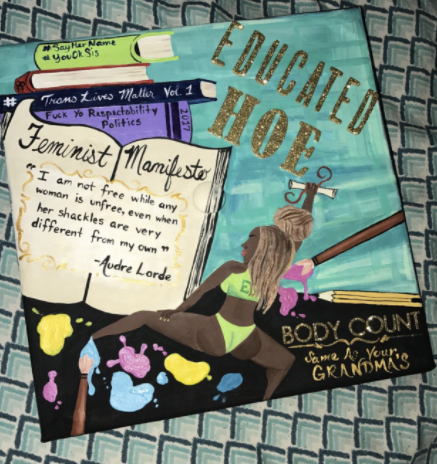 #SayHerName
#YouOkSis
# Trans Lives Matter Vol. 1
Fuck Yo Respectability
Politics
2017
EDUCATED
HOE
Feminist Manifesto
"I am not free while any
woman is unfree, even when
her shackles are very
different from my own"
-Audre Lorde
BODY COUNT
Same As Your
GRANDMA'S